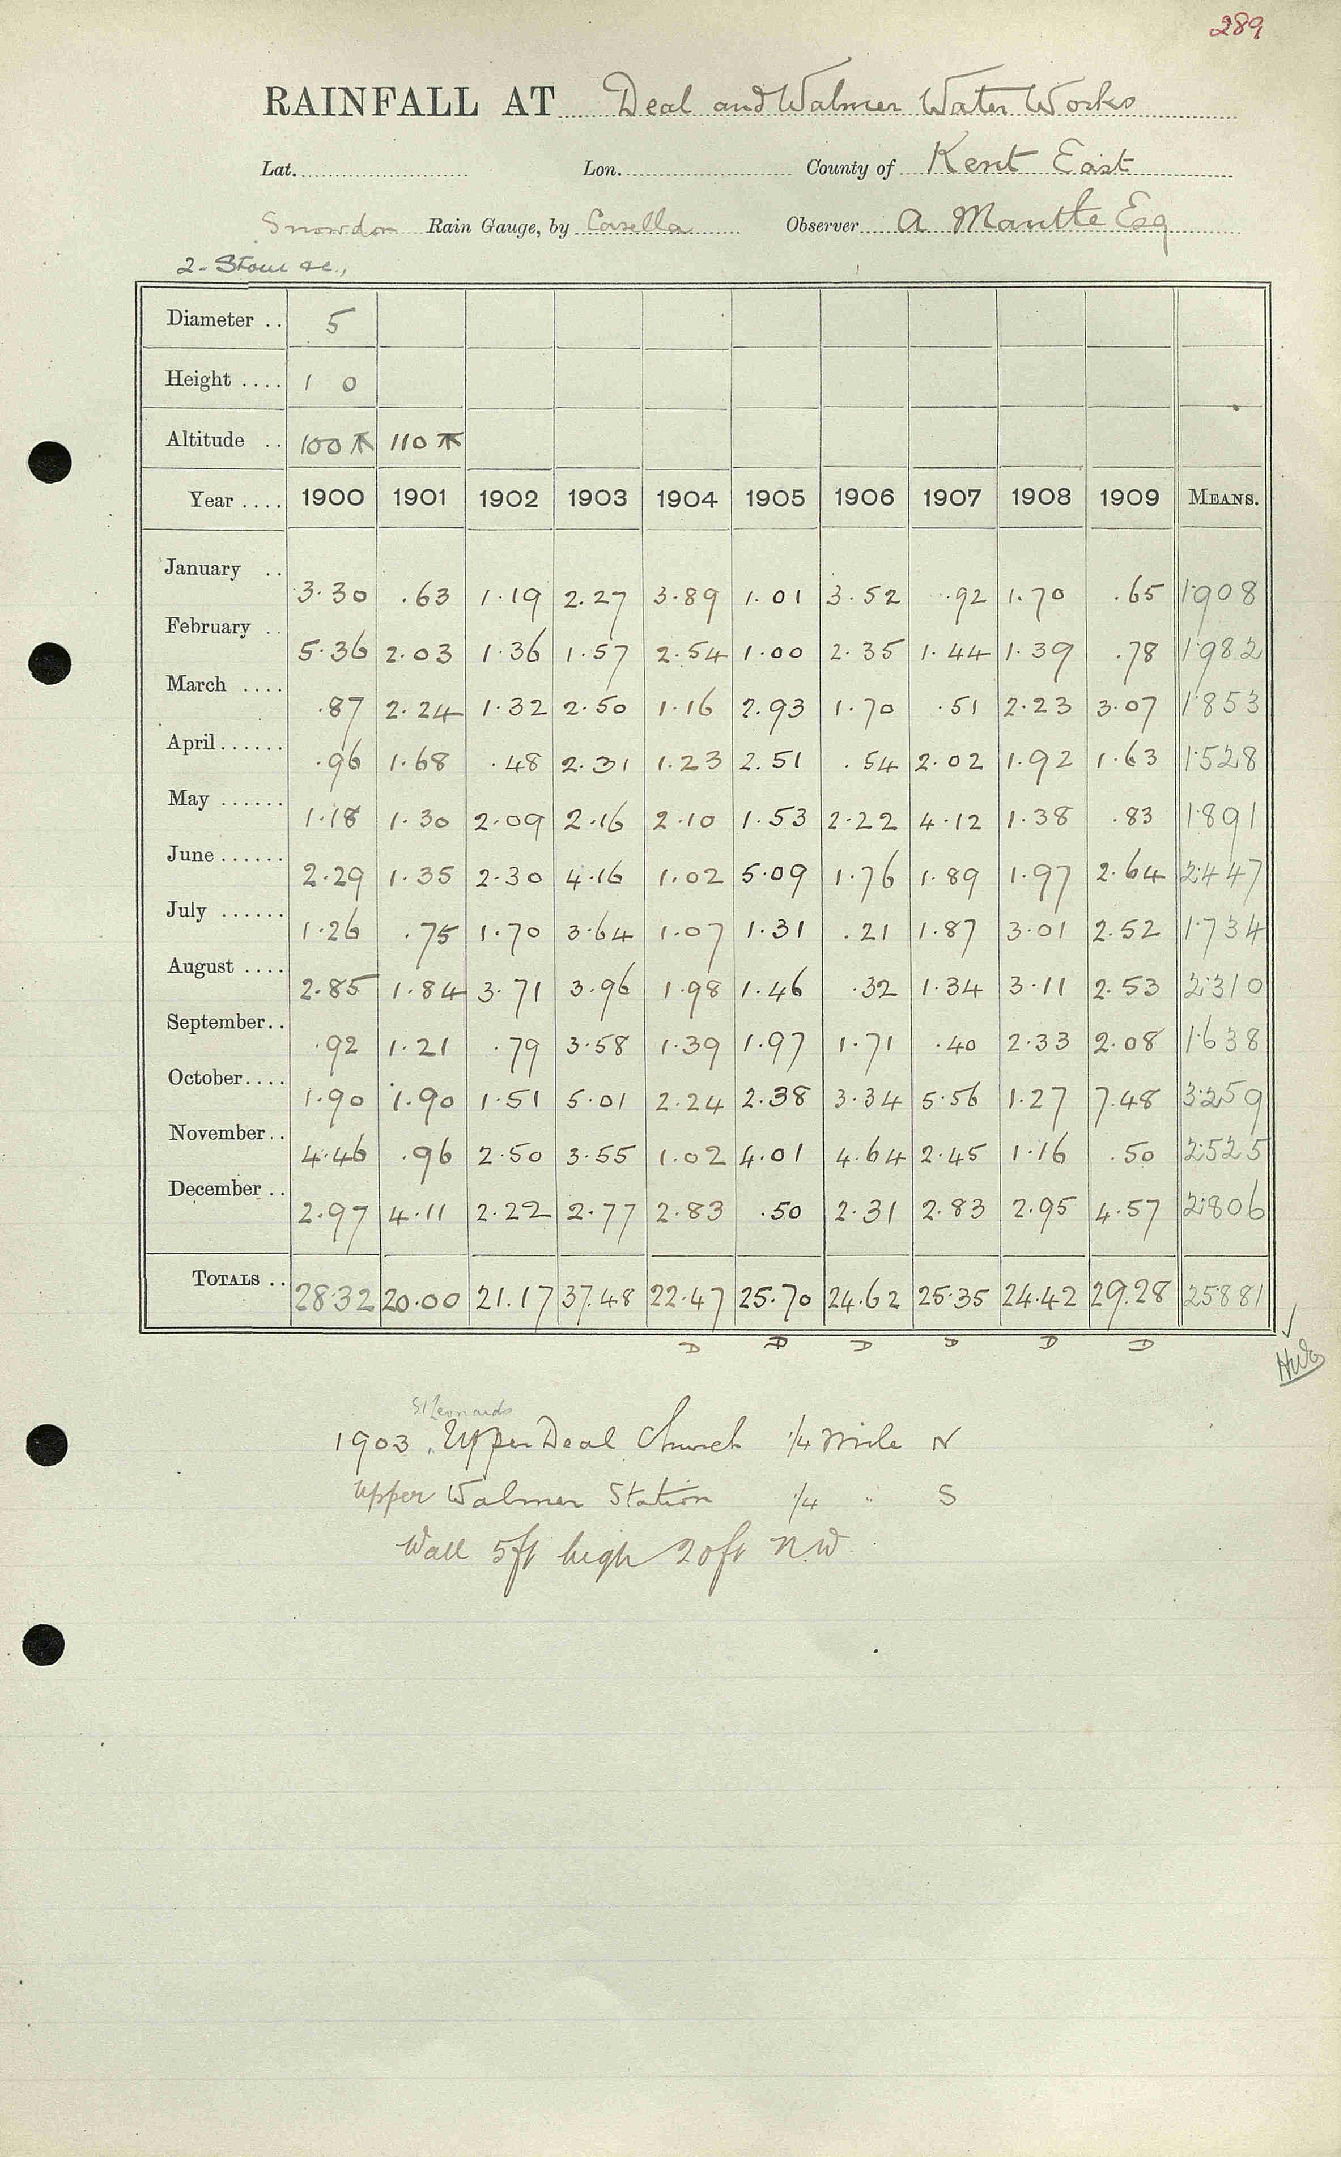 289
RAINFALL AT Deal and Walmer Water Works
Lat. Lon. County of Kent East
Snowdon Rain Gauge, by Casella Observer A Mantle Esq
2 - Stour &c.,
Diameter .. 5
Height .... 1 0
Altitude .. 100 110
Year .... 1900 1901 1902 1903 1904 1905 1906 1907 1908 1909 MEANS.
January .. 3.30 .63 1.19 2.27 3.89 1.01 3.52 .92 1.70 .65 1.908
February .. 5.36 2.03 1.36 1.57 2.54 1.00 2.35 1.44 1.39 .78 1.982
March .... .87 2.24 1.32 2.50 1.16 2.93 1.70 .51 2.23 3.07 1.853
April ...... .96 1.68 .48 2.31 1.23 2.51 .54 2.02 1.92 1.63 1.528
May ...... 1.18 1.30 2.09 2.16 2.10 1.53 2.22 4.12 1.38 .83 1.891
June ...... 2.29 1.35 2.30 4.16 1.02 5.09 1.76 1.89 1.97 2.64 2.447
July ...... 1.26 .75 1.70 3.64 1.07 1.31 .21 1.87 3.01 2.52 1.734
August .... 2.85 1.84 3.71 3.96 1.98 1.46 .32 1.34 3.11 2.53 2.310
September.. .92 1.21 .79 3.58 1.39 1.97 1.71 .40 2.33 2.08 1.638
October.... 1.90 1.90 1.51 5.01 2.24 2.38 3.34 5.56 1.27 7.48 3.259
November.. 4.46 .96 2.50 3.55 1.02 4.01 4.64 2.45 1.16 .50 2.525
December .. 2.97 4.11 2.22 2.77 2.83 .50 2.31 2.83 2.95 4.57 2.806
TOTALS .. 28.32 20.00 21.17 37.48 22.47 25.70 24.62 25.35 24.42 29.28 25881
D D D D D D
St Leonards
1903. Upper Deal Church 1/4 mile N
Upper Walmer Station 1/4 " S
Wall 5ft high 20ft NW